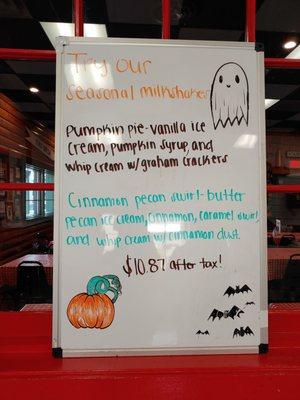 Try our
seasonal milkshakes
Pumpkin pie-vanilla ice
cream, pumpkin syrup, and
whip cream w/ graham crackers
Cinnamon pecan swirl-butter
pecan ice cream, cinnamon, caramel swirl,
and whip cream w/ cinnamon dust.
$10.87 after tax!